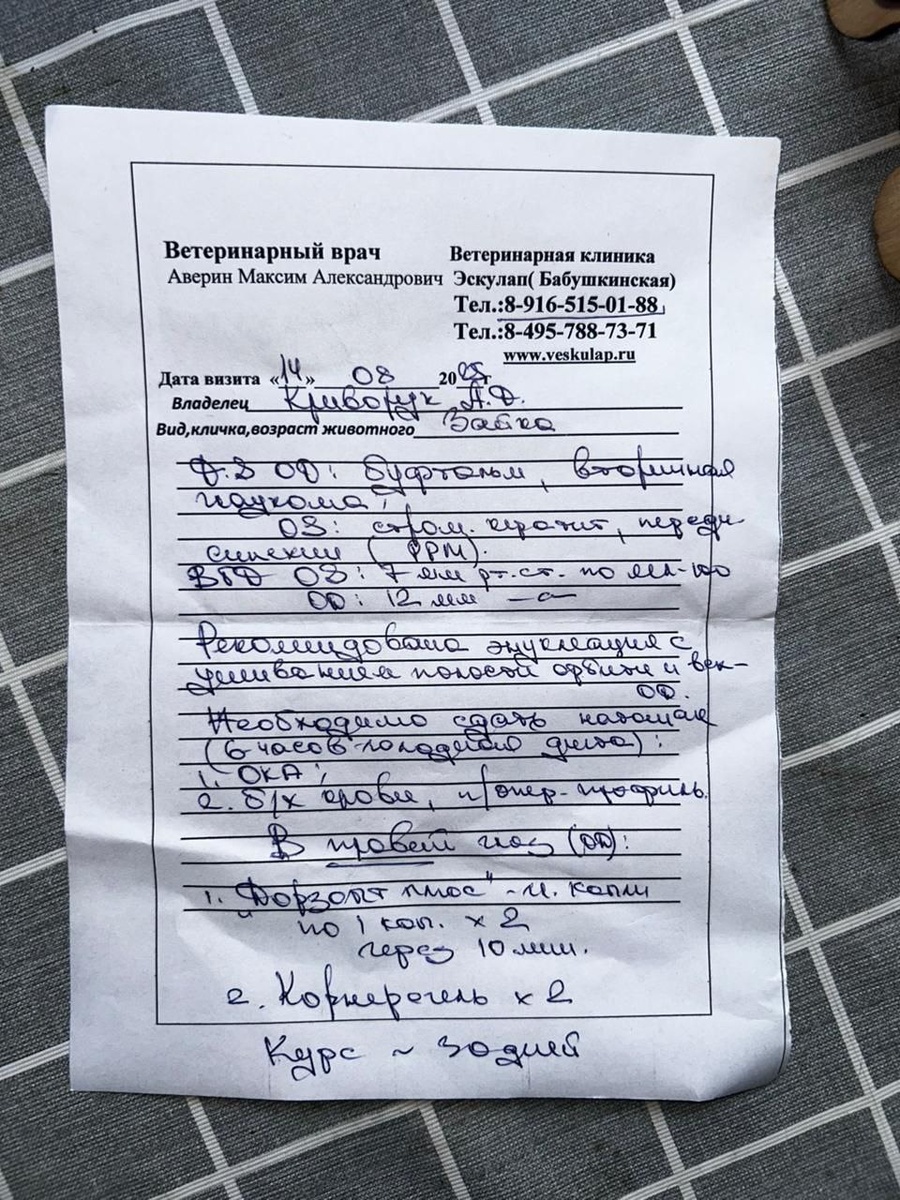 Ветеринарный врач
Аверин Максим Александрович
Ветеринарная клиника
Эскулап( Бабушкинская)
Тел.:8-916-515-01-88
Тел.:8-495-788-73-71
www.veskulap.ru
Дата визита «14» 08 2025г
Владелец Криворук А.Ф.
Вид,кличка,возраст животного Зайка
D.S OD: буфтальм, вторичная
глаукома;
OS: стром. кератит, передн
синехии (РРМ).
ВГД OS: 7 мм рт.ст. по
OD: 12 мм
Рекомендована энуклеация с
ушиванием полости орбиты и век-
OD.
Необходимо сдать натощак
(6 часов голодной диеты):
1. ОКА;
2. б/х крови, п/опер. профиль.
В правый глаз (OD):
1. "Дорзопт плюс" - гл. капли
по 1 кап. х 2
через 10 мин.
2. Корнерегель х 2
Курс ~ 30 дней